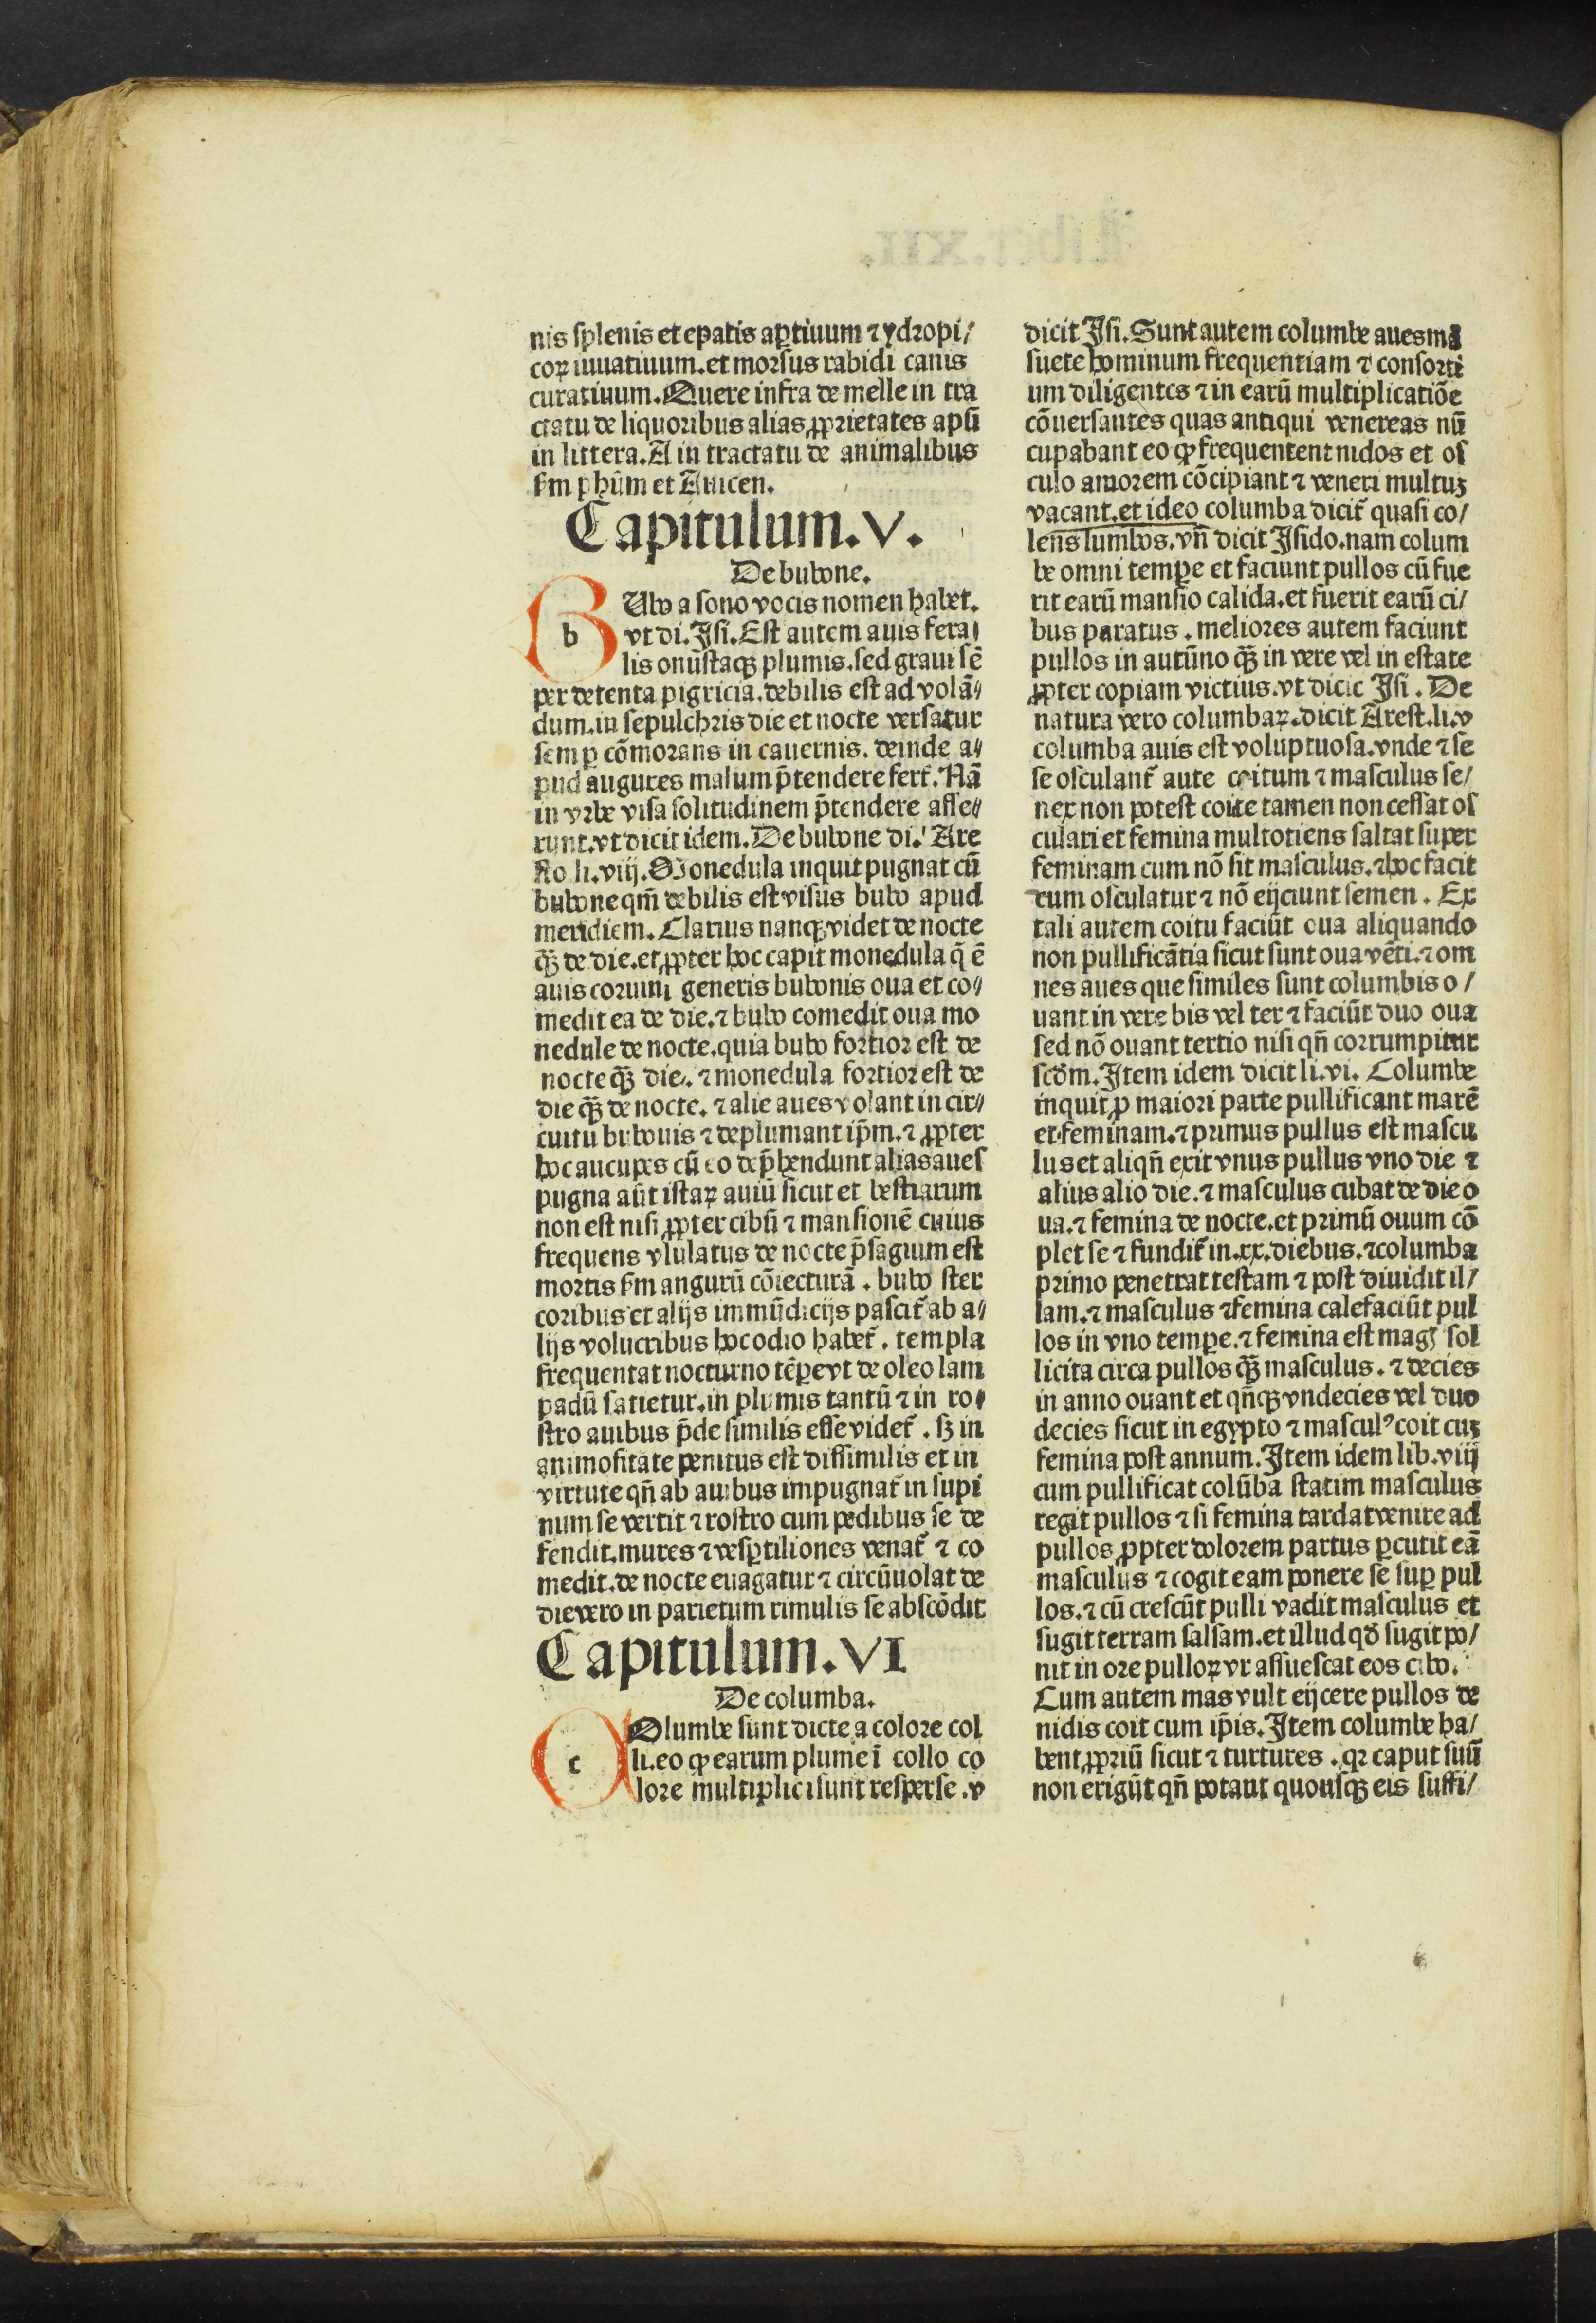 nis splenis et epatis aꝑtiuum ⁊ ydropi/
coꝝ iuuatiuum. et morsus rabidi canis
curatiuum. Quere infra de melle in tra
ctatu de liquoribus alias ꝓprietates apū
in littera. A in tractatu de animalibus
ẜm phūm et Auicen.
Capitulum. V.
De bubone.
BUbo a sono vocis nomen habet.
vt di. Isi. Est autem auis fera/
lis onustaqꝫ plumis. sed graui sē
per detenta pigricia. debilis est ad volā/
dum. in sepulchris die et nocte versatur
semꝑ cōmorans in cauernis. deinde a/
pud augures malum p̄tendere fert̄. Nā
in vrbe visa solitudinem p̄tendere asse/
runt. vt dicit idem. De bubone di. Are
sto li. viij. Monedula inquit pugnat cū
bubone qm̄ debilis est visus bubo apud
meridiem. Clarius nanqꝫ videt de nocte
qꝫ̄ de die. et ꝓpter hoc capit monedula q̄ ē
auis coruini generis bubonis oua et co/
medit ea de die. ⁊ bubo comedit oua mo
nedule de nocte. quia bubo fortior est de
nocte qꝫ̄ die. ⁊ monedula fortior est de
die qꝫ̄ de nocte. ⁊ alie aues volant in cir/
cuitu bubonis ⁊ deplumant ip̄m. ⁊ ꝓpter
hoc aucupes cū eo dep̄hendunt alias aues
pugna aūt istaꝝ auiū sicut et bestiarum
non est nisi ꝓpter cibū ⁊ mansionē cuius
frequens vlulatus de nocte p̄sagium est
mortis ẜm angurū cōiecturā. bubo ster
coribus et alijs immūdicijs pascit̄ ab a/
lijs volucribus hoc odio habet̄. templa
frequentat nocturno tēꝑe vt de oleo lam
padū satietur. in plumis tantū ⁊ in ro/
stro auibus p̄de similis esse videt̄. sꝫ in
animositate penitus est dissimilis et in
virtute qn̄ ab auibus impugnat̄ in supi
num se vertit ⁊ rostro cum pedibus se de
fendit. mures ⁊ vesꝑtiliones venat̄ ⁊ co
medit. de nocte euagatur ⁊ circūuolat de
die vero in parietum rimulis se abscōdit
Capitulum. VI
De columba.
COlumbe sunt dicte a colore col
li. eo ꝙ earum plume ī collo co
lore multiplici sunt resperse. v
dicit Isi. Sunt autem columbe aues mā
suete hominum frequentiam ⁊ consorti
um diligentes ⁊ in earū multiplicatiōe
cōuersantes quas antiqui venereas nū
cupabant eo ꝙ frequentent nidos et os
culo amorem cōcipiant ⁊ veneri multuꝫ
vacant. et ideo columba dicit̄ quasi co/
lens lumbos. vn̄ dicit Isido. nam colum
be omni tempe et faciunt pullos cū fue
rit earū mansio calida. et fuerit earū ci/
bus paratus. meliores autem faciunt
pullos in autūno qꝫ̄ in vere vel in estate
ꝓpter copiam victius. vt dicic Isi. De
natura vero columbaꝝ. dicit Arest. li. v
columba auis est voluptuosa. vnde ⁊ se
se osculant̄ aute coitum ⁊ masculus se/
nex non potest coite tamen non cessat os
culari et femina multotiens saltat super
feminam cum nō sit masculus. ⁊ hoc facit
cum osculatur ⁊ nō eijciunt semen. Ex
tali autem coitu faciūt oua aliquando
non pullificātia sicut sunt oua vēti. ⁊ om
nes aues que similes sunt columbis o/
uant in vere bis vel ter ⁊ faciūt duo oua
sed nō ouant tertio nisi qn̄ corrumpitur
scd̄m. Item idem dicit li. vi. Columbe
inquit ꝓ maiori parte pullificant marē
et feminam. ⁊ primus pullus est mascu
lus et aliqn̄ exit vnus pullus vno die ⁊
alius alio die. ⁊ masculus cubat de die o
ua. ⁊ femina de nocte. et primū ouum cō
plet se ⁊ fundit̄ in. xx. diebus. ⁊ columba
primo penetrat testam ⁊ post diuidit il/
lam. ⁊ masculus ⁊ femina calefaciūt pul
los in vno tempe. ⁊ femina est magꝭ sol
licita circa pullos qꝫ̄ masculus. ⁊ decies
in anno ouant et qn̄qꝫ vndecies vel duo
decies sicut in egypto ⁊ masculꝰ coit cuꝫ
femina post annum. Item idem lib. viij
cum pullificat colūba statim masculus
regit pullos ⁊ si femina tardat venire ad
pullos ꝓpter dolorem partus ꝑcutit eā
masculus ⁊ cogit eam ponere se suꝑ pul
los. ⁊ cū crescūt pulli vadit masculus et
sugit terram salsam. et illud qd̄ sugit po/
nit in ore pulloꝝ vr assuescat eos cibo.
Cum autem mas vult eijcere pullos de
nidis coit cum ip̄is. Item columbe ha/
bent ꝓpriū sicut ⁊ turtures. qꝛ caput suū
non erigūt qn̄ potant quousqꝫ eis suffi/